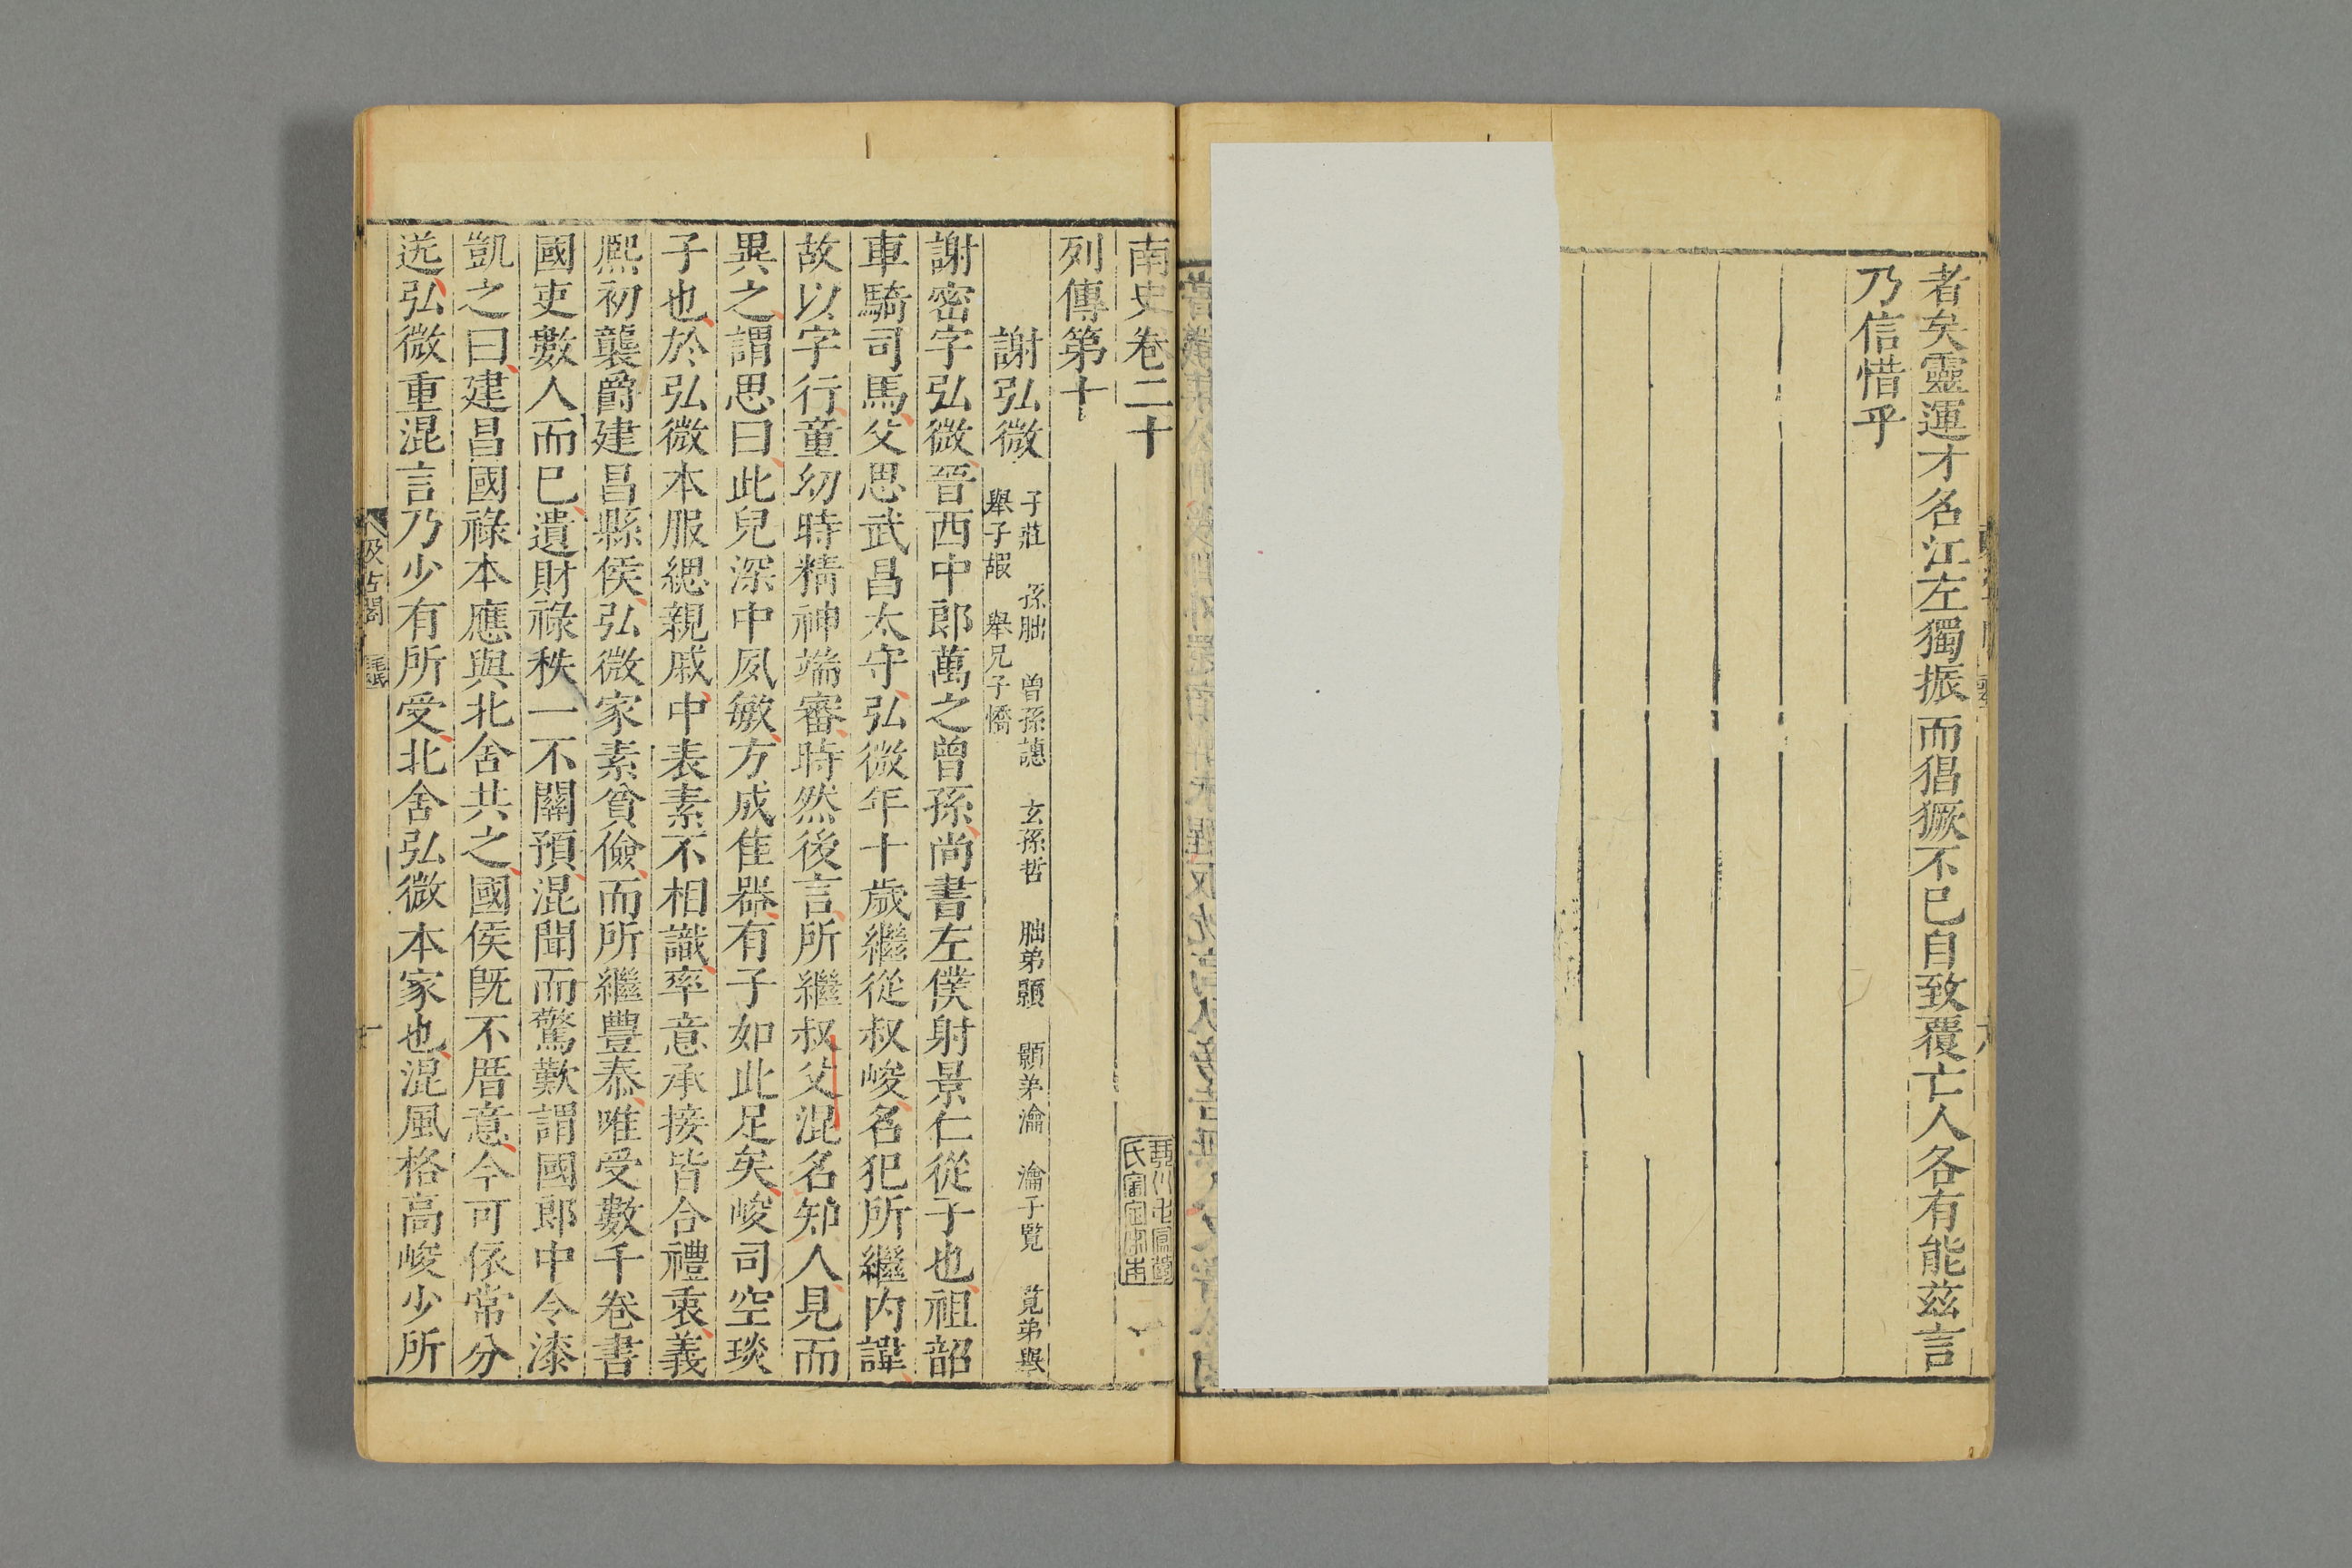 者矣靈運才名江左獨振而猖獗不已自致覆亡人各有能茲言
乃信惜乎
南史卷二十
列傳第十
謝弘微
子莊 孫朏 曾孫譓 玄孫哲 朏弟顥 顥弟瀹 瀹子覽 覽弟舉
舉子嘏 舉兄子僑
謝密字弘微晉西中郎萬之曾孫尚書左僕射景仁從子也祖韶
車騎司馬父思武昌太守弘微年十歲繼從叔峻名犯所繼内諱
故以字行童幼時精神端審時然後言所繼叔父混名知人見而
異之謂思曰此兒深中夙敏方成佳器有子如此足矣峻司空琰
子也於弘微本服緦親戚中表素不相識率意承接皆合禮衷義
熙初襲爵建昌縣侯弘微家素貧儉而所繼豐泰唯受數千卷書
國吏數人而已遺財祿秩一不關預混聞而驚歎謂國郎中令漆
凱之曰建昌國祿本應與北舍共之國侯既不厝意今可依常分
送弘微重混言乃少有所受北舍弘微本家也混風格高峻少所
汲古閣 毛氏